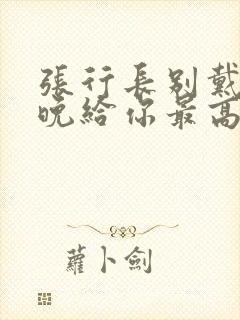 張行長別戴
晚給你最高
蘿卜劍